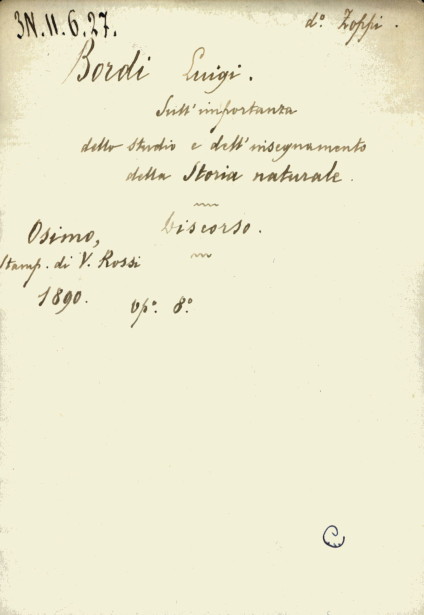 3N.11.6.27.
d.º Zoppi.
Bordi Luigi.
Sull'importanza
dello studio e dell'insegnamento
della Storia naturale.
Discorso.
Osimo,
Stamp. di V. Rossi
1890. op.º 8.º
C